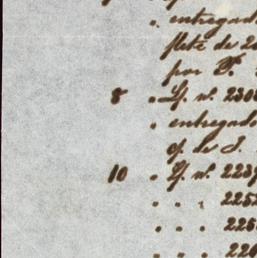 " entregad
flete de 2
por P.
8 " L/. nº. 230
" entregado
c/. de S.
10 " L/. nº. 223
" " " 2252
" " " 226
" " " 226